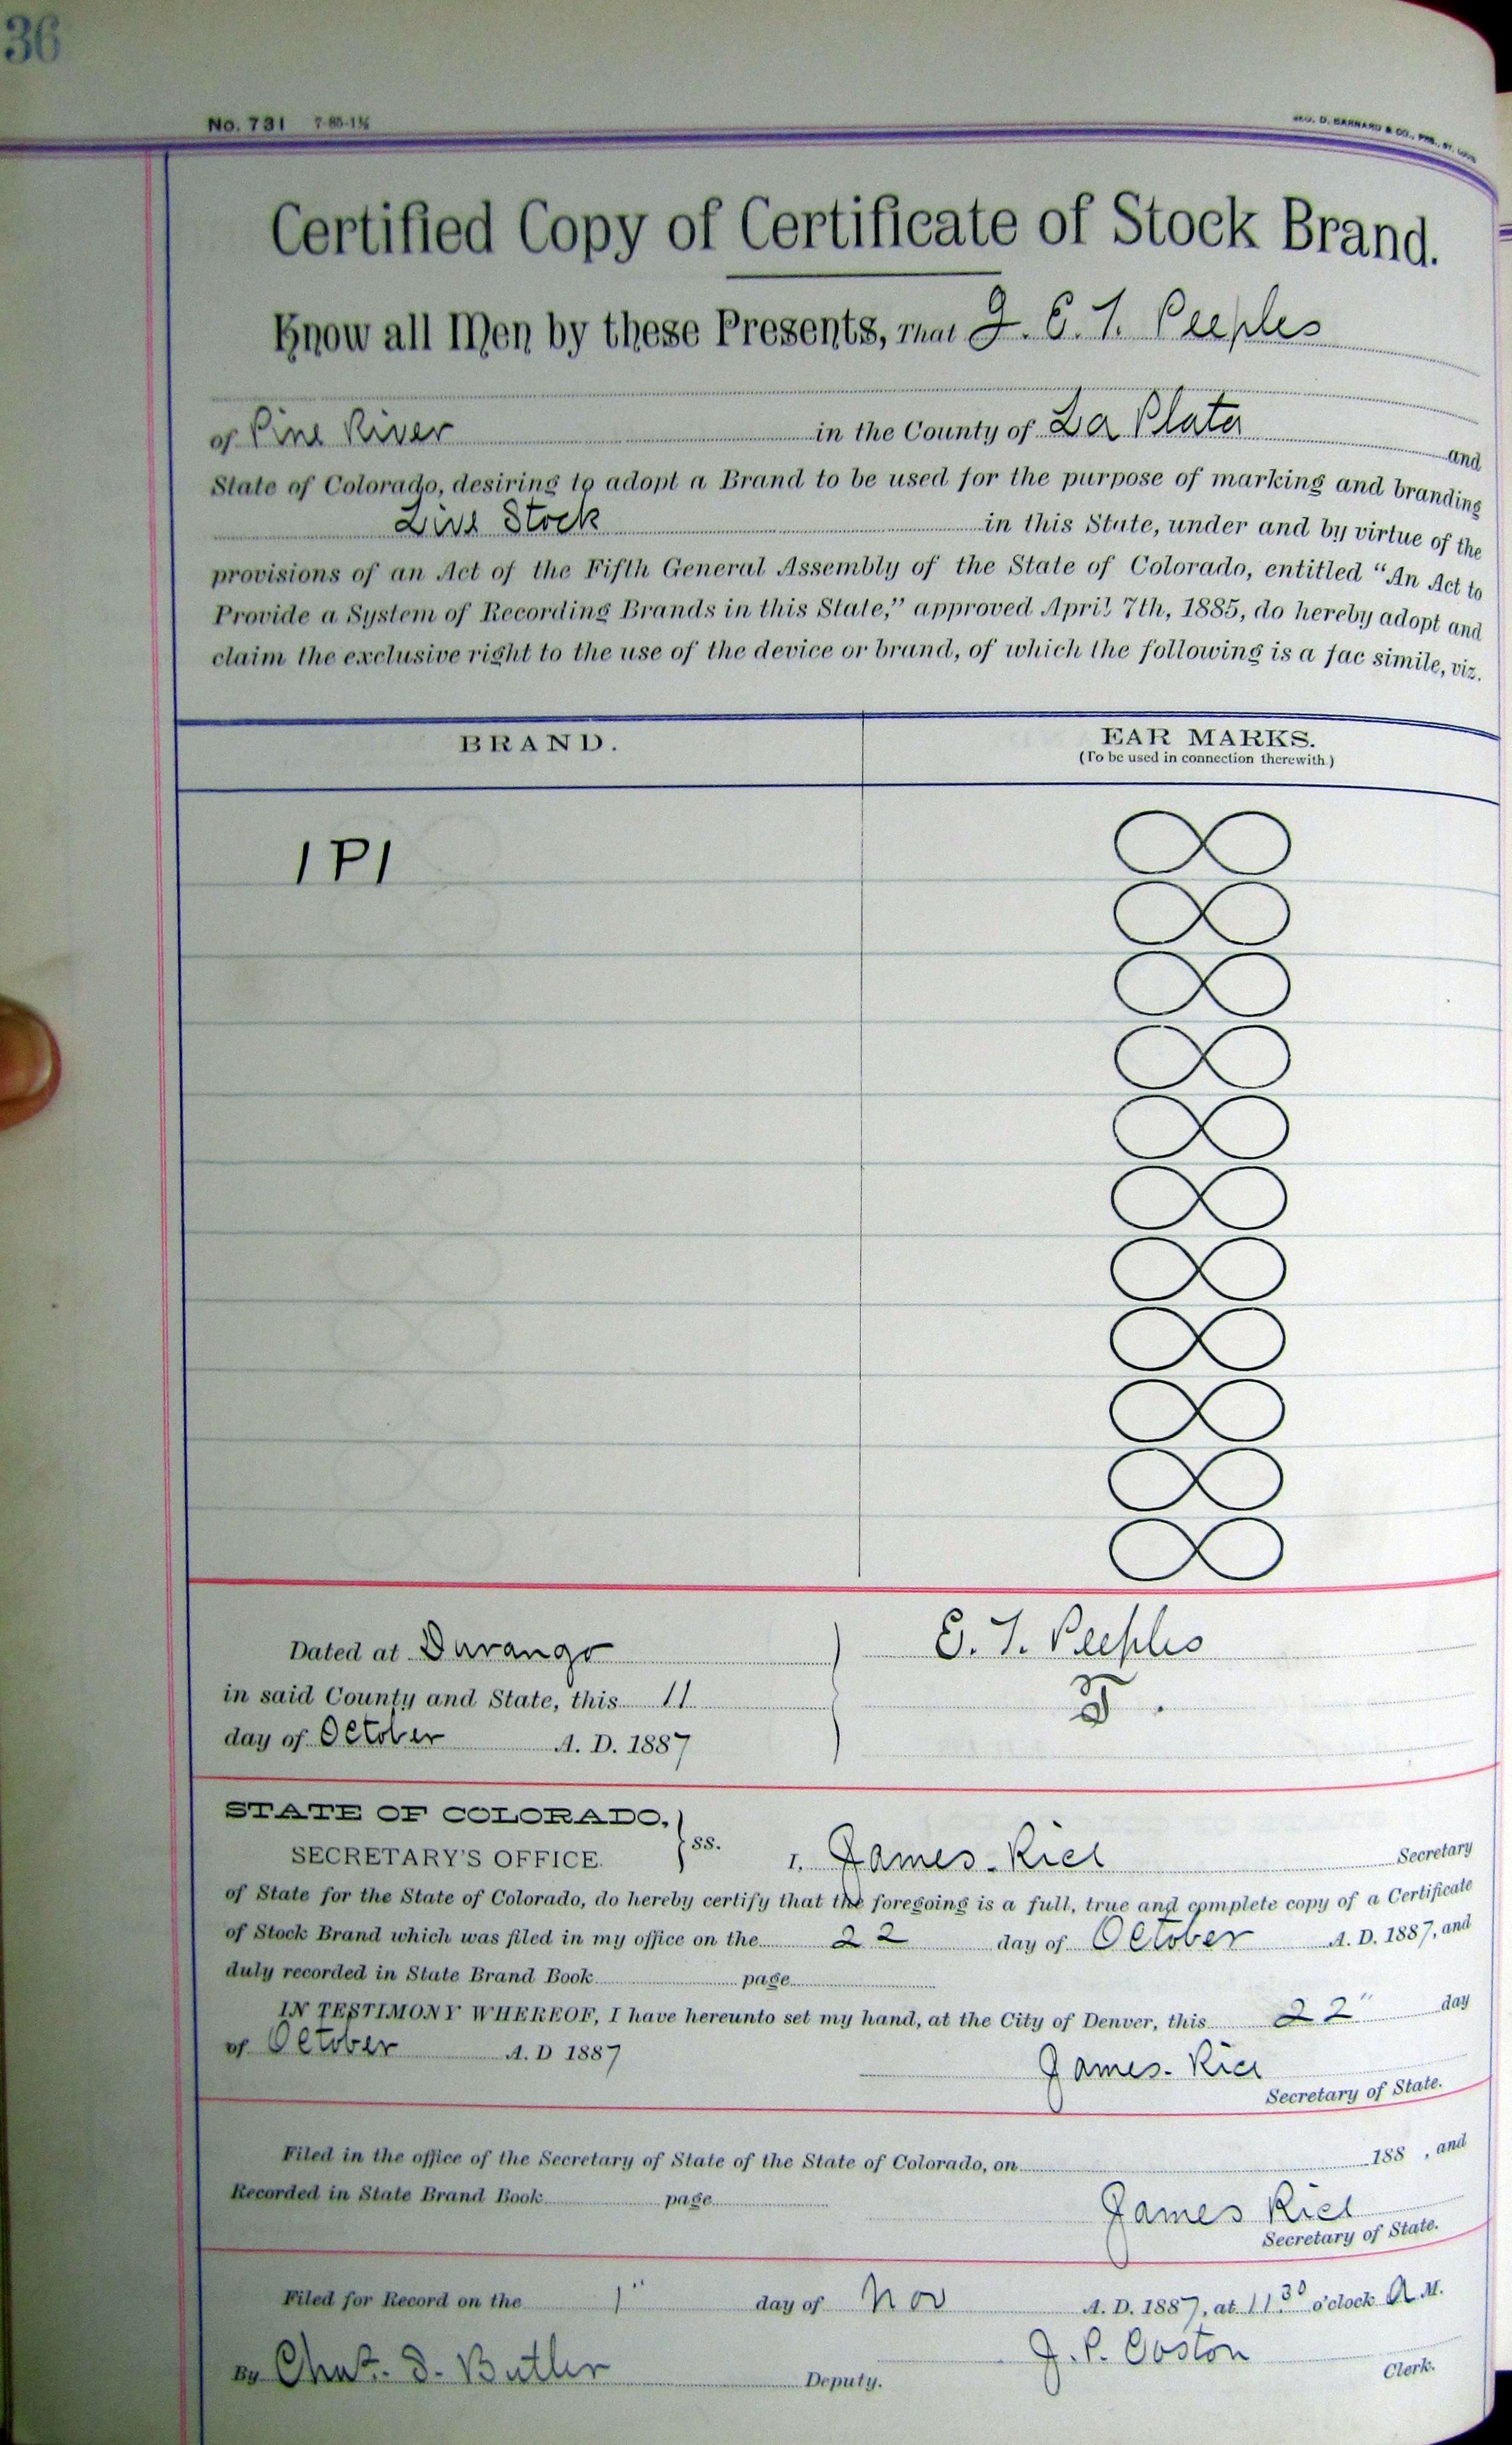 36
No. 731 7-85-1½
GEO. D. BARNARD & CO., PRS., ST. LOUIS
Certified Copy of Certificate of Stock Brand.
Know all Men by these Presents, That I. E. T. Peeples
of Pine River in the County of La Plata and
State of Colorado, desiring to adopt a Brand to be used for the purpose of marking and branding
Live Stock in this State, under and by virtue of the
provisions of an Act of the Fifth General Assembly of the State of Colorado, entitled "An Act to
Provide a System of Recording Brands in this State," approved April 7th, 1885, do hereby adopt and
claim the exclusive right to the use of the device or brand, of which the following is a fac simile, viz.
BRAND. EAR MARKS.
(To be used in connection therewith.)
IPI
Dated at Durango E. T. Peeples
in said County and State, this 11
day of October A. D. 1887
STATE OF COLORADO, ss.
SECRETARY'S OFFICE. I, James Rice Secretary
of State for the State of Colorado, do hereby certify that the foregoing is a full, true and complete copy of a Certificate
of Stock Brand which was filed in my office on the 22 day of October A. D. 1887, and
duly recorded in State Brand Book page
IN TESTIMONY WHEREOF, I have hereunto set my hand, at the City of Denver, this 22" day
of October A. D 1887
James Rice
Secretary of State.
Filed in the office of the Secretary of State of the State of Colorado, on 188 , and
Recorded in State Brand Book page
James Rice
Secretary of State.
Filed for Record on the 1" day of Nov A. D. 1887, at 11 30 o'clock A M.
J. P. Coston
By Chas. D. Butler Deputy. Clerk.